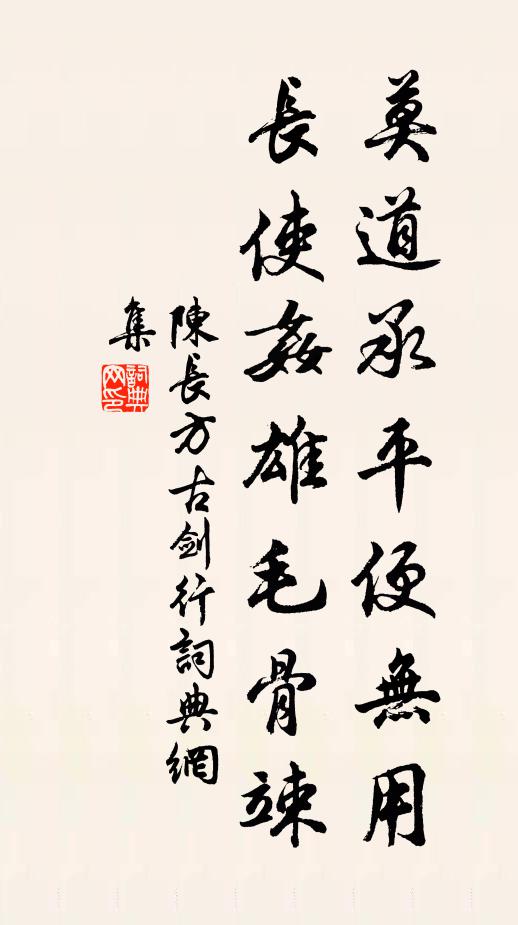 莫道承平便無用
長使姦雄毛骨竦
陳長方古劍行詞典網
集
詞典網印